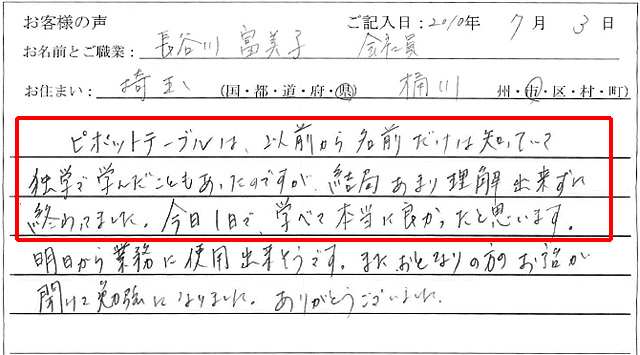 お客様の声 ご記入日：2010年 7月 3日
お名前とご職業： 長谷川 富美子 会社員
お住まい： 埼玉 (国・都・道・府・県) 桶川 州・市・区・村・町)
ピボットテーブルは、以前から名前だけは知っていて
独学で学んだこともあったのですが、結局あまり理解出来ずに
終わってました。今日1日で、学べて本当に良かったと思います。
明日から業務に使用出来そうです。またおとなりの方のお話が
聞けて勉強になりました。ありがとうございました。